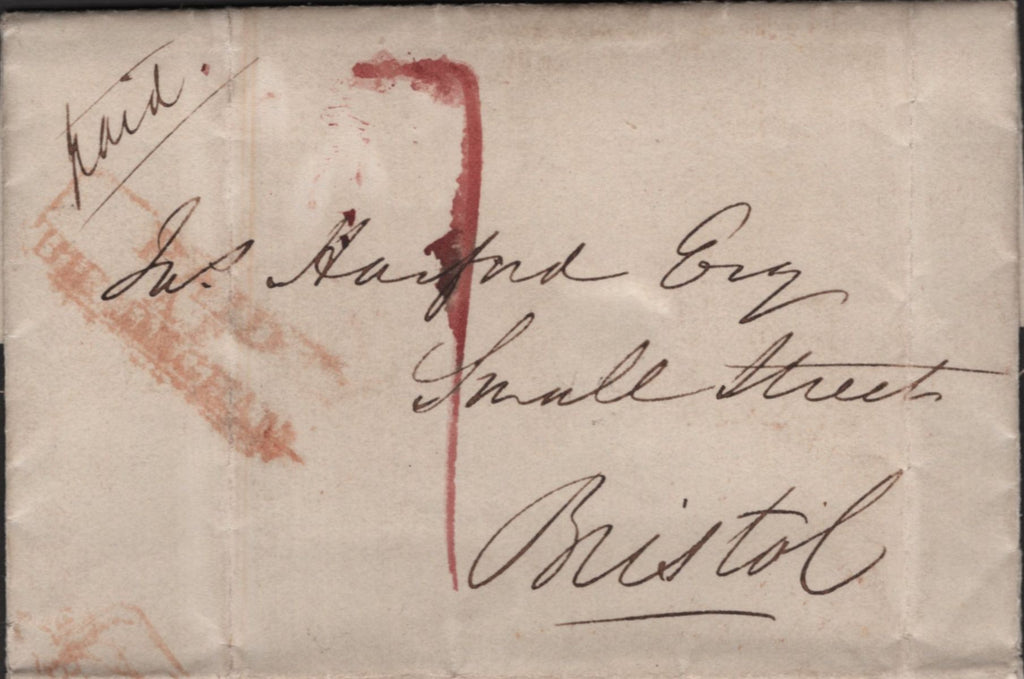 Paid.
Jnᵒ. Harford Esq
Small Street
Bristol